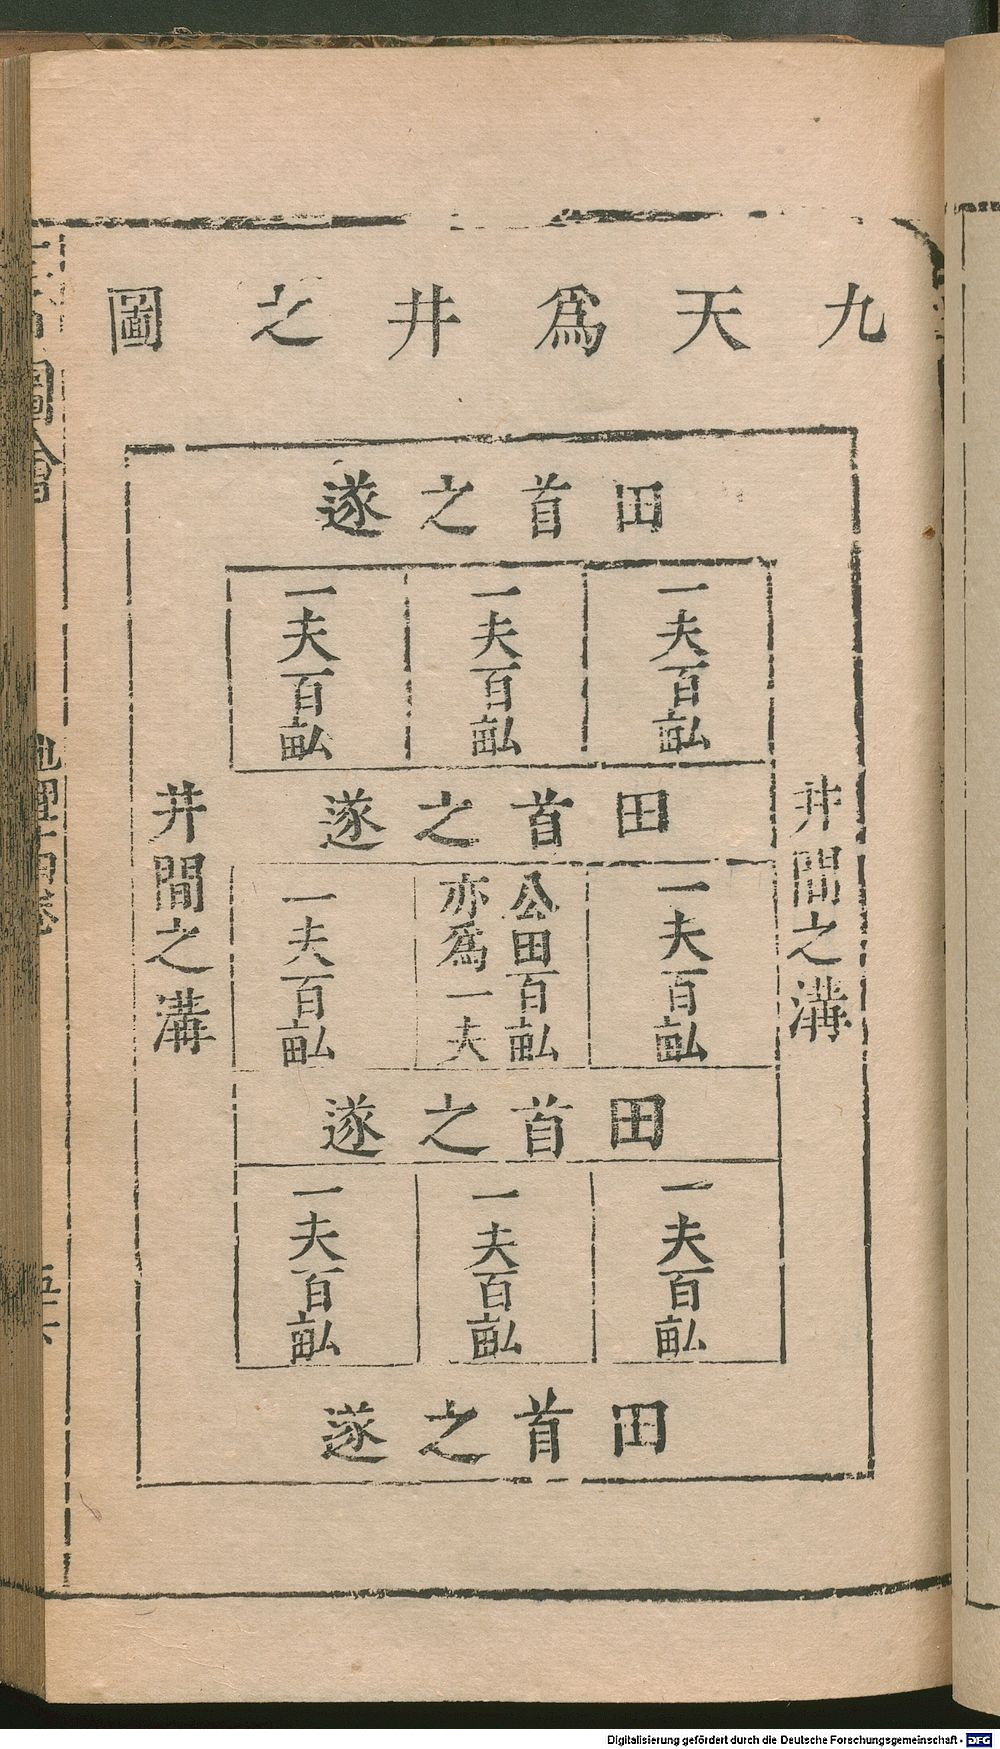 九天為井之圖
田首之遂
一夫百畝
一夫百畝
一夫百畝
井間之溝
田首之遂
井間之溝
一夫百畝
公田百畝
亦為一夫
一夫百畝
田首之遂
一夫百畝
一夫百畝
一夫百畝
田首之遂
圖會
地理
Digitalisierung gefördert durch die Deutsche Forschungsgemeinschaft - DFG